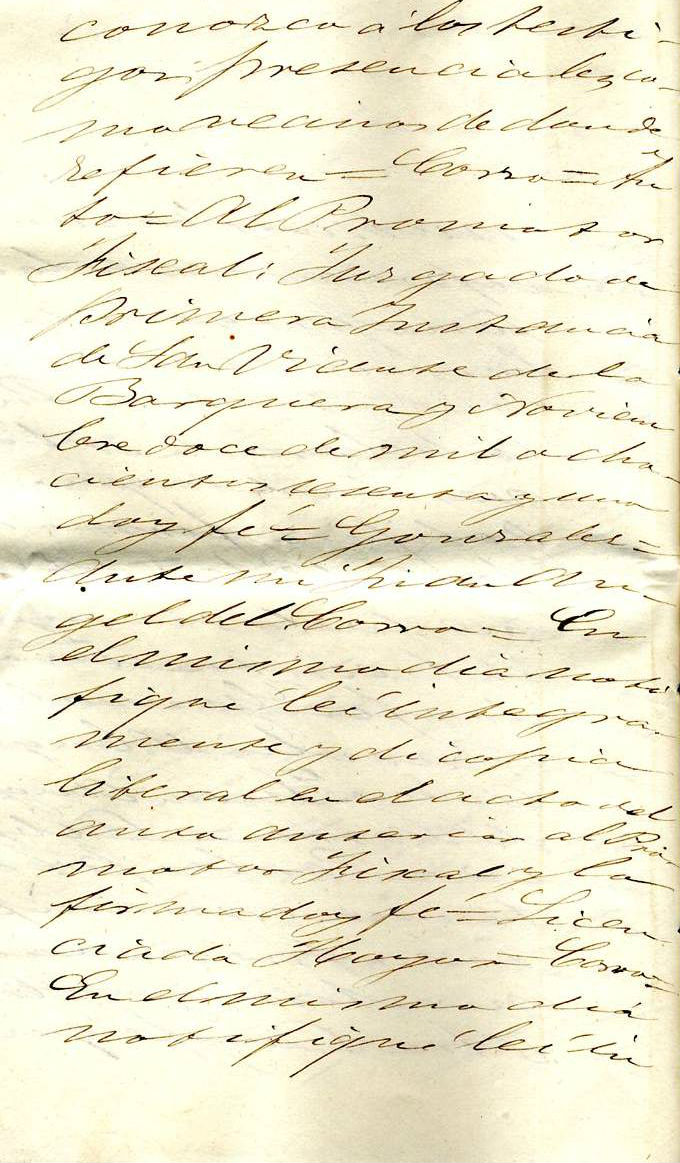 conozco á los testi-
gos, presenciales, co-
mo vecinos de donde
refieren = Corro = Au
to = Al Promotor
Fiscal: Juzgado de
primera Instancia
de San Vicente de la
Barquera y Noviem
bre doce de mil ocho-
cientos sesenta y uno
doy fé = Gonzalez =
Ante mi Juan An-
gel del Corro = En
el mismo dia noti
fiqué leí integra-
mente y di copia
literal en el acto del
auto anterior al Pro
motor Fiscal y la
firma doy fé = Licen
ciado Hoyos = Corro =
En el mismo dia
notifiqué leí in